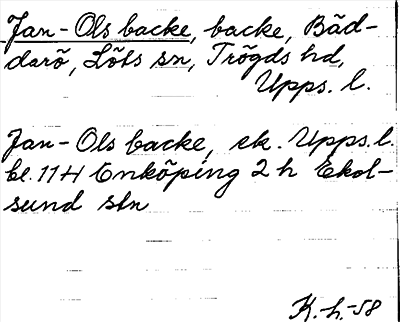 Jan-Ols backe, backe, Bäd-
darö, Löts sn, Trögds hd,
Upps. l.
Jan-Ols backe, ek. Upps. l.
bl. 11 H Enköping 2 h Ekol-
sund stn
K.-h.-58